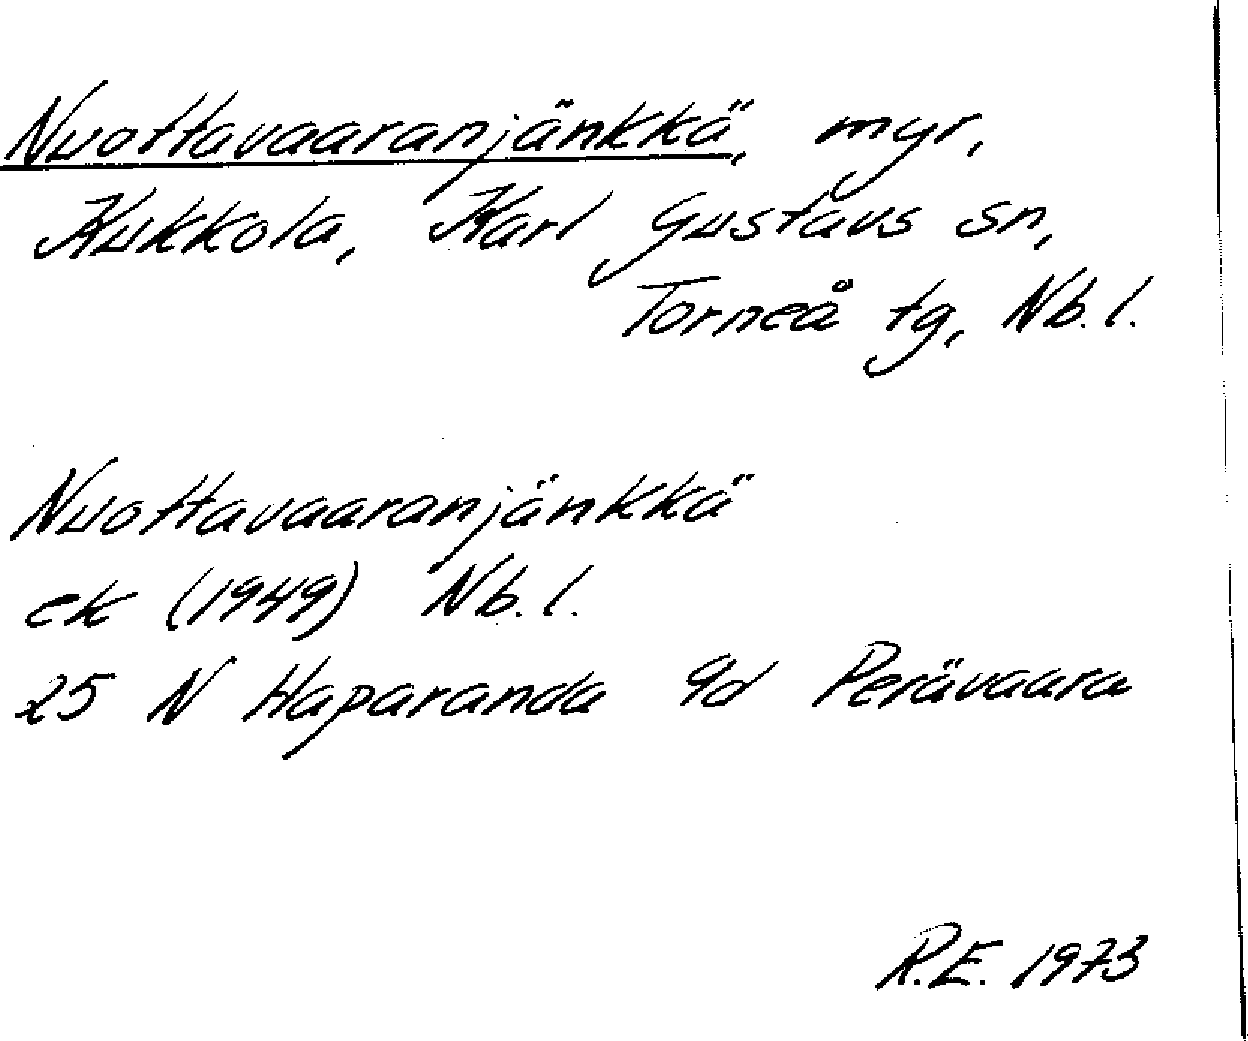 Nuottavaaranjänkkä, myr,
Kukkola, Karl Gustavs sn,
Torneå tg, Nb. l.
Nuottavaaranjänkkä
ek (1949) Nb. l.
25 N Haparanda 9d Perävaara
R.E. 1973